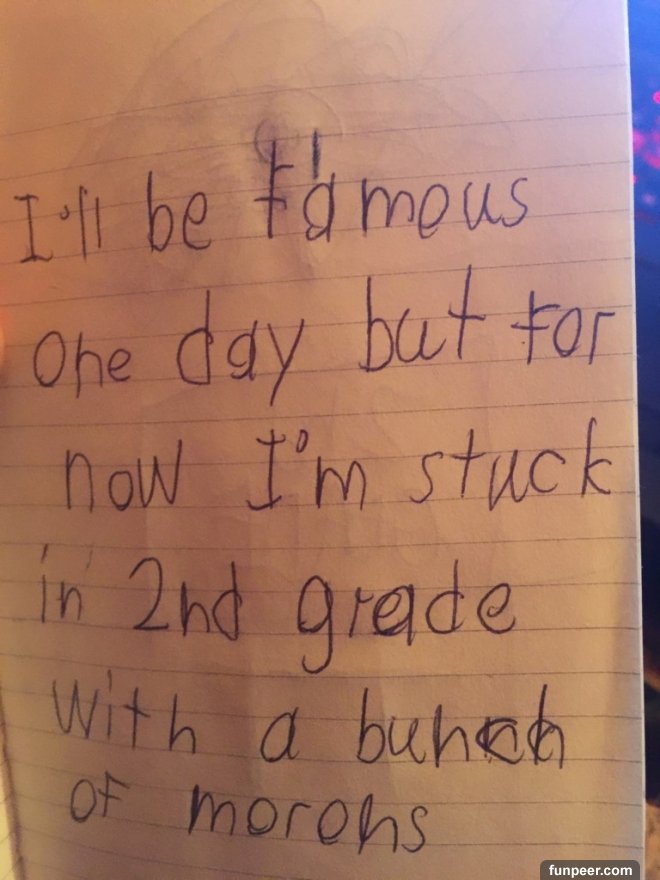 I'll be famous
one day but for
now I'm stuck
in 2nd grade
with a bunch
of morons
funpeer.com